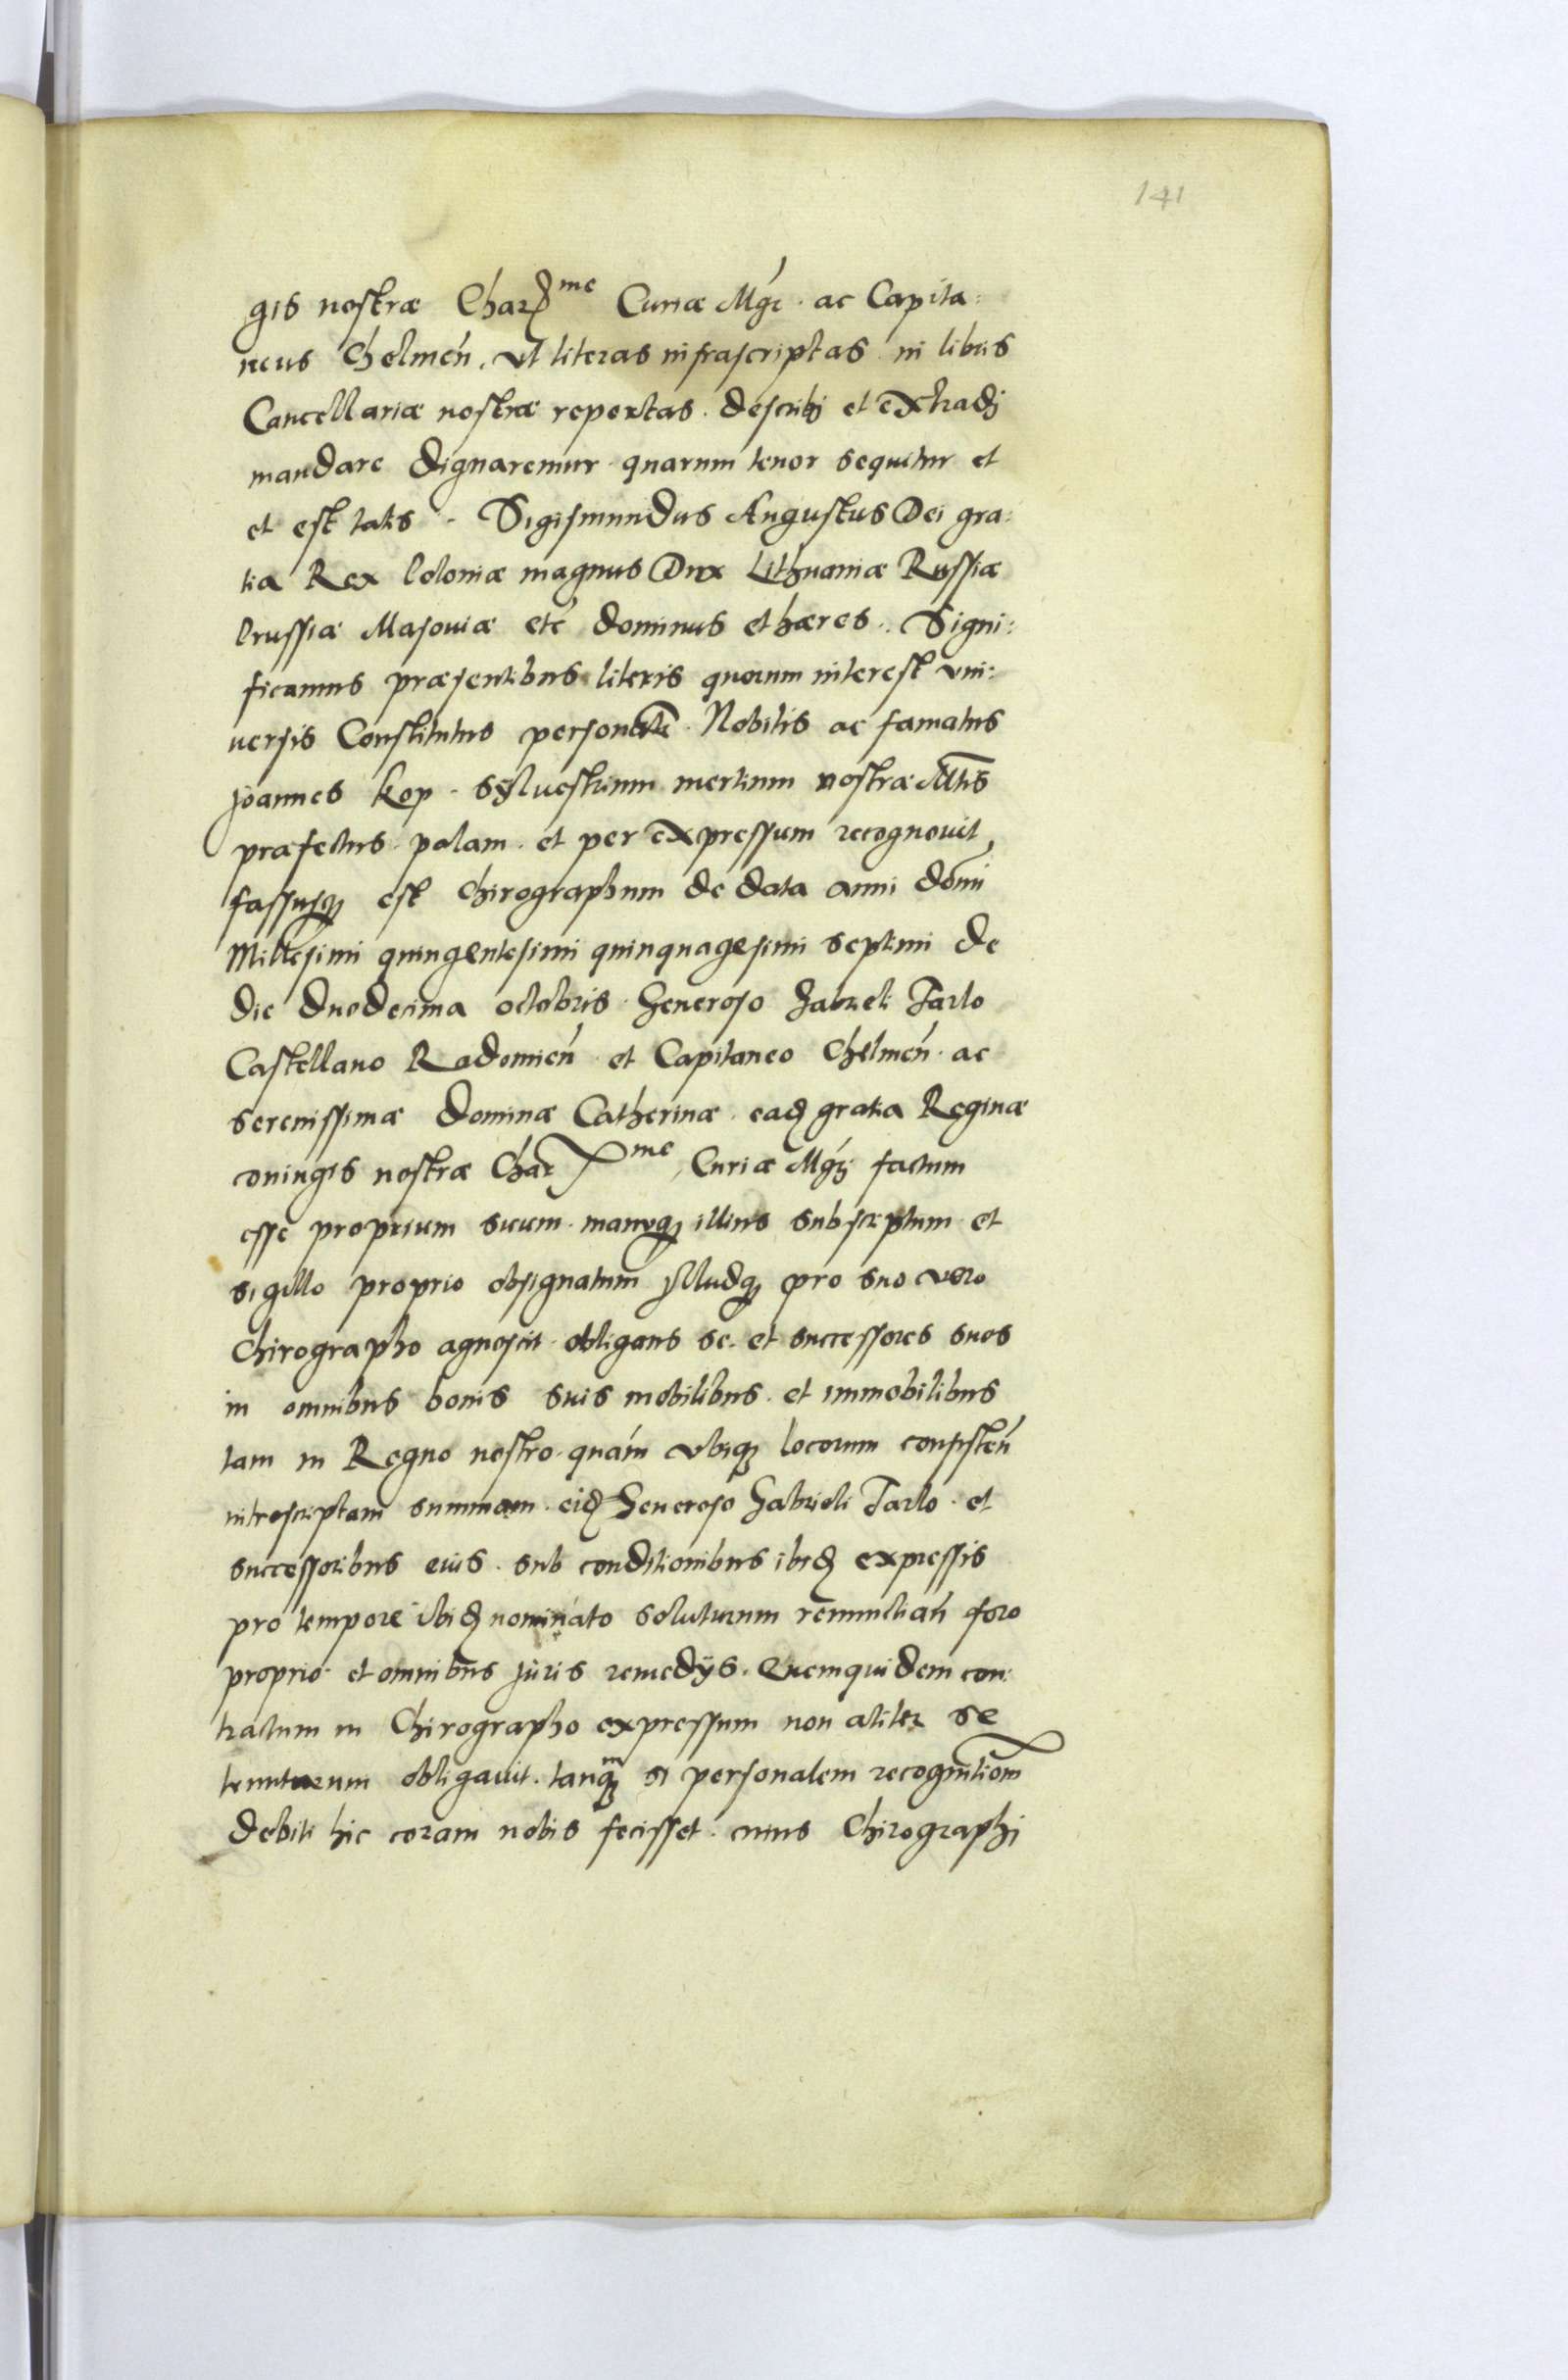 141
gis nostræ Charme Curiæ Mgr. ac Capita:
neus Chelmeń. vt literas infrascriptas in libris
Cancellariæ nostræ repertas. describj et extradj
mandare dignaremur quarum tenor sequitur et
et est talis. Sigismundus Augustus Dei gra:
tia Rex Poloniæ magnus Dux Lithuaniæ Russiæ
Prussiæ Masouiæ etc dominus et hæres. Signi:
ficamus præsentibus literis quorum interest vni:
uersis Constitutus personalr. Nobilis ac famatus
Joannes Kop. Syluestrium mertium nostræ Mtis
præfectus. palam. et per expressum recognouit
fassusq est Chirographum de data anni domi
Millesimi quingentesimi quinquagesimi septimi de
die duodecima octobris. Generoso Gabrieli Tarlo
Castellano Radomień et Capitaneo Chelmeń. ac
serenissimæ dominæ Catherinæ. ead gratia Reginæ
coniugis nostræ Charme, Curiæ Mgrj factum
esse proprium suum. manuq illius subscriptum et
sigillo proprio obsignatum Illudq pro suo vero
Chirographo agnoscit. obligans se. et successores suos
in omnibus bonis suis mobilibus. et immobilibus
tam in Regno nostro. quám vbiq locorum consisteń
introscriptam summam. eid Generoso Gabrieli Tarlo. et
successoribus eius. sub conditionibus ibid expressis
pro tempore ibid nominato soluturum renunctiań foro
proprio et omnibus juris remedijs. Quemquidem con:
tractum in Chirographo expressum non aliter se
tenturum obligauit. tanqm si personalem recognitiom
debiti hic coram nobis fecisset. cuius Chirographi